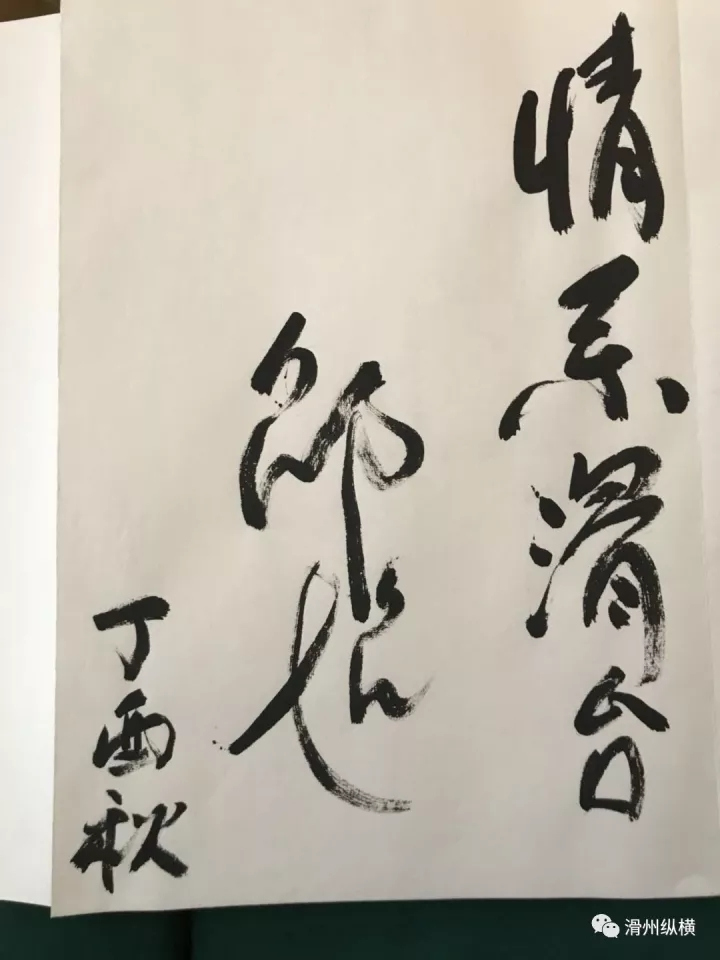 情系滑台
丁酉秋
滑州纵横